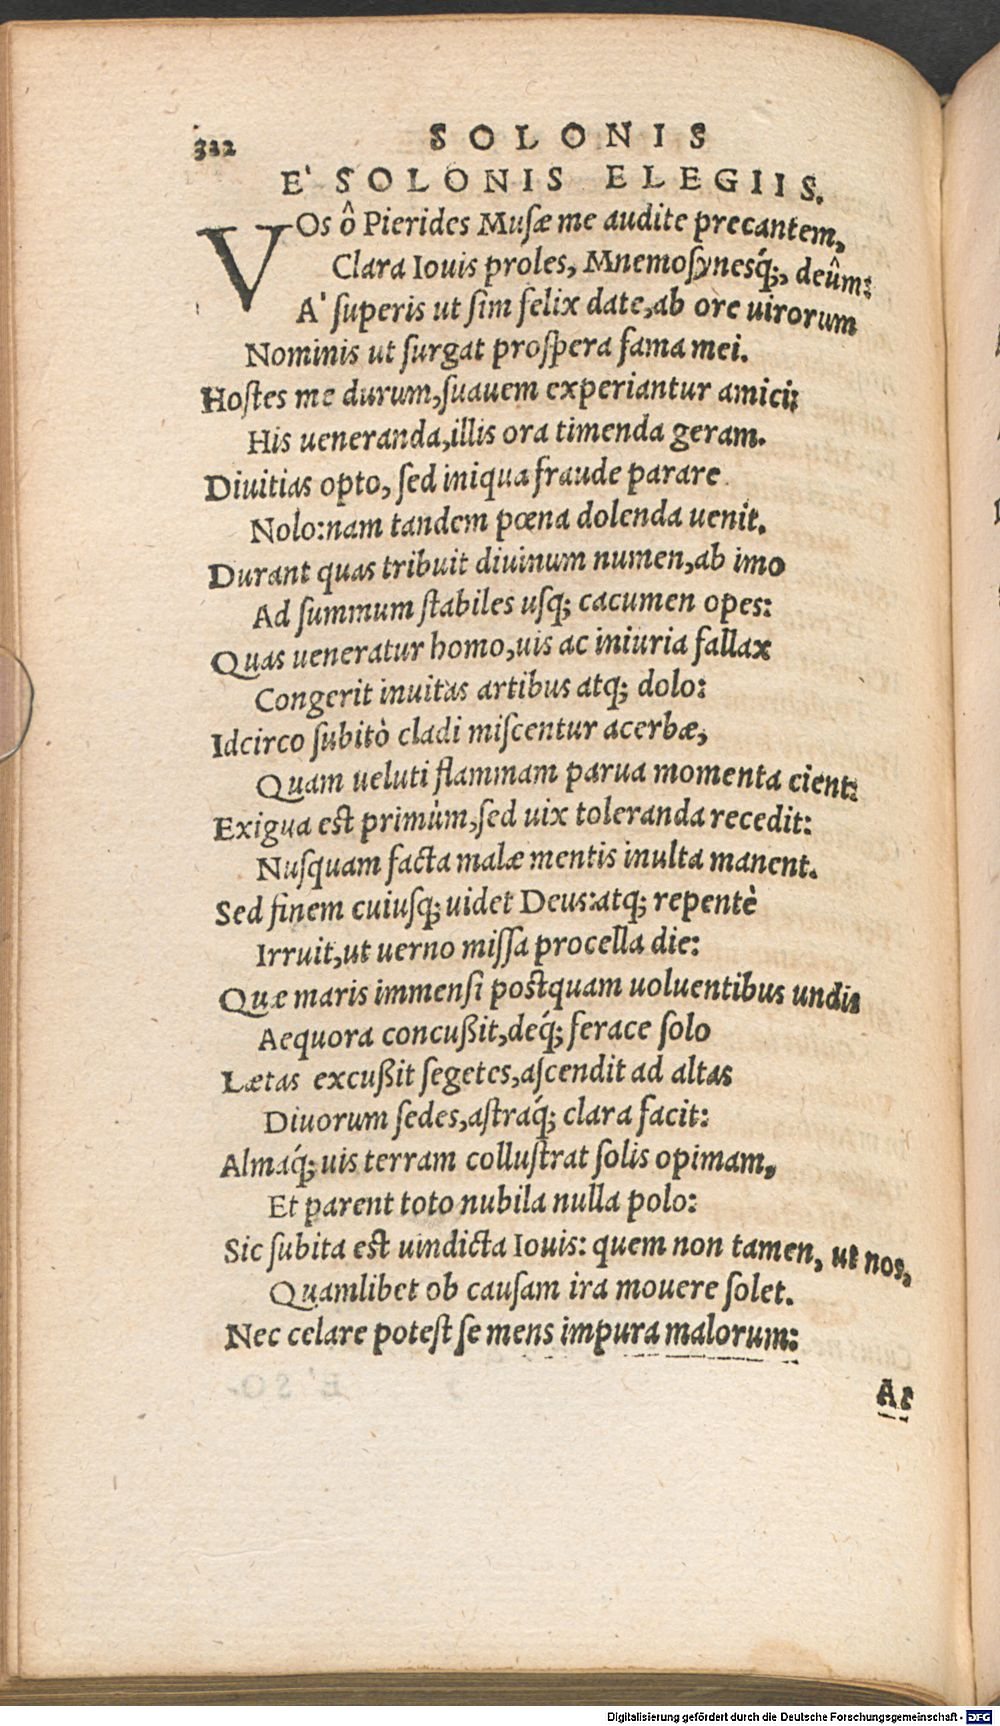 312 SOLONIS
E' SOLONIS ELEGIIS.
VOs ô Pierides Musæ me audite precantem,
Clara Iouis proles, Mnemosynesq́;, deûm:
A' superis ut sim felix date, ab ore uirorum
Nominis ut surgat prospera fama mei.
Hostes me durum, suauem experiantur amici:
His ueneranda, illis ora timenda geram.
Diuitias opto, sed iniqua fraude parare
Nolo: nam tandem pœna dolenda uenit.
Durant quas tribuit diuinum numen, ab imo
Ad summum stabiles usq; cacumen opes:
Quas ueneratur homo, uis ac iniuria fallax
Congerit inuitas artibus atq; dolo:
Idcirco subitò cladi miscentur acerbæ,
Quam ueluti flammam parua momenta cient:
Exigua est primùm, sed uix toleranda recedit:
Nusquam facta malæ mentis inulta manent.
Sed finem cuiusq; uidet Deus: atq; repentè
Irruit, ut uerno missa procella die:
Quæ maris immensi postquam uoluentibus undis
Aequora concußit, deq́; ferace solo
Lætas excußit segetes, ascendit ad altas
Diuorum sedes, astraq́; clara facit:
Almaq́; uis terram collustrat solis opimam,
Et parent toto nubila nulla polo:
Sic subita est uindicta Iouis: quem non tamen, ut nos,
Quamlibet ob causam ira mouere solet.
Nec celare potest se mens impura malorum:
Digitalisierung gefördert durch die Deutsche Forschungsgemeinschaft - DFG